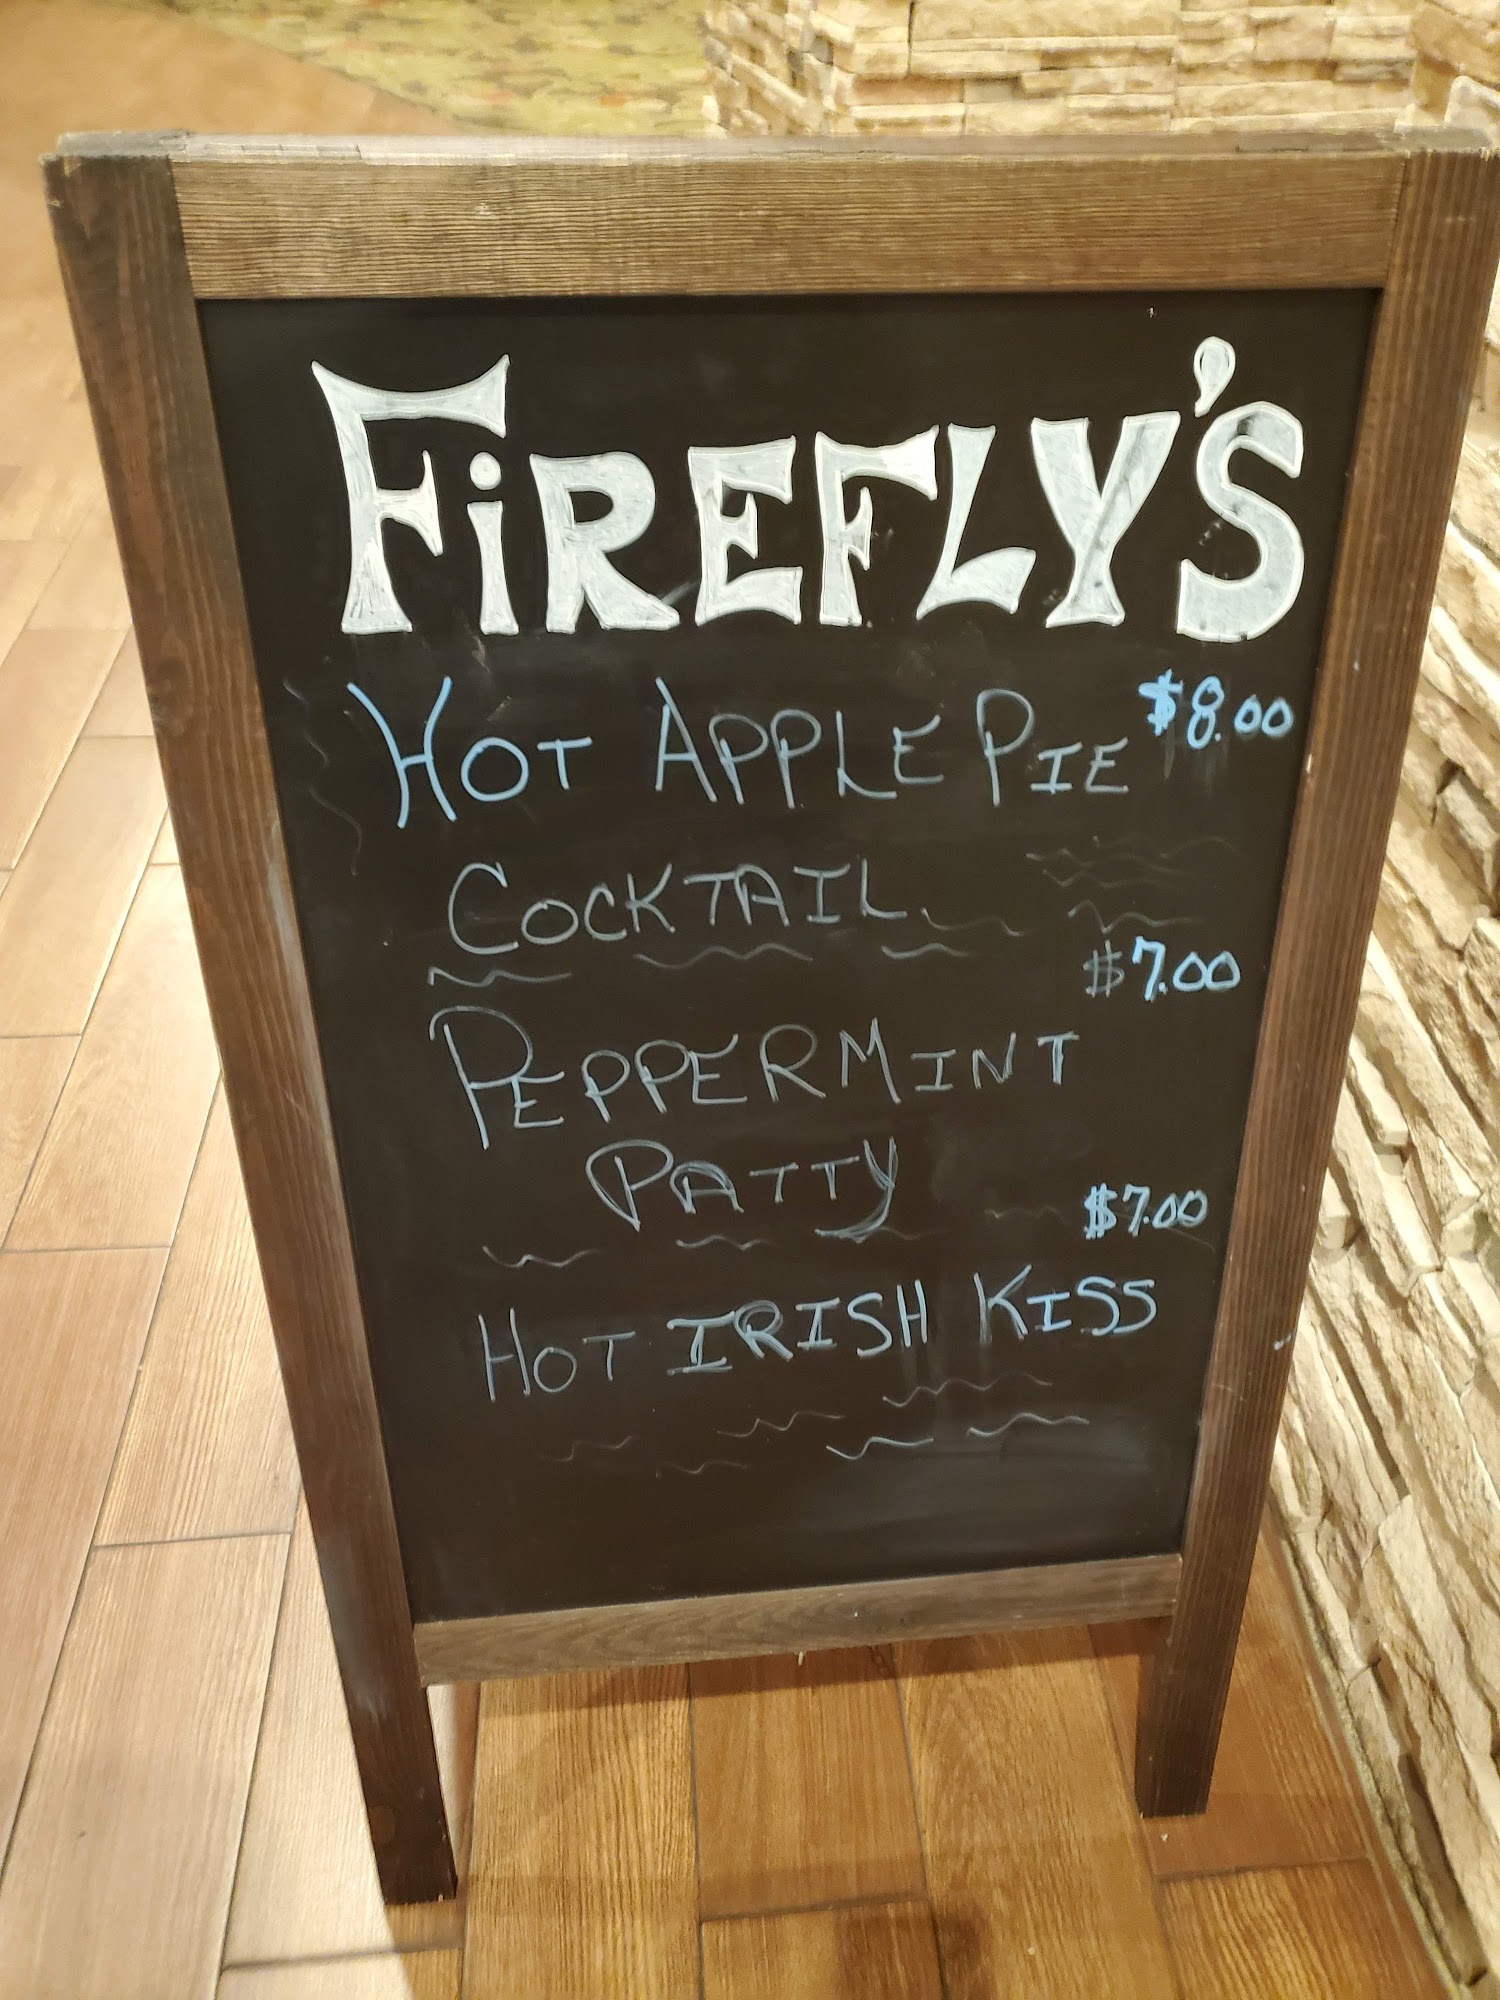 FiREFLY'S
HOT APPLE PIE $8.00
COCKTAIL
$7.00
PEPPERMINT
PATTY
$7.00
HOT IRISH KISS